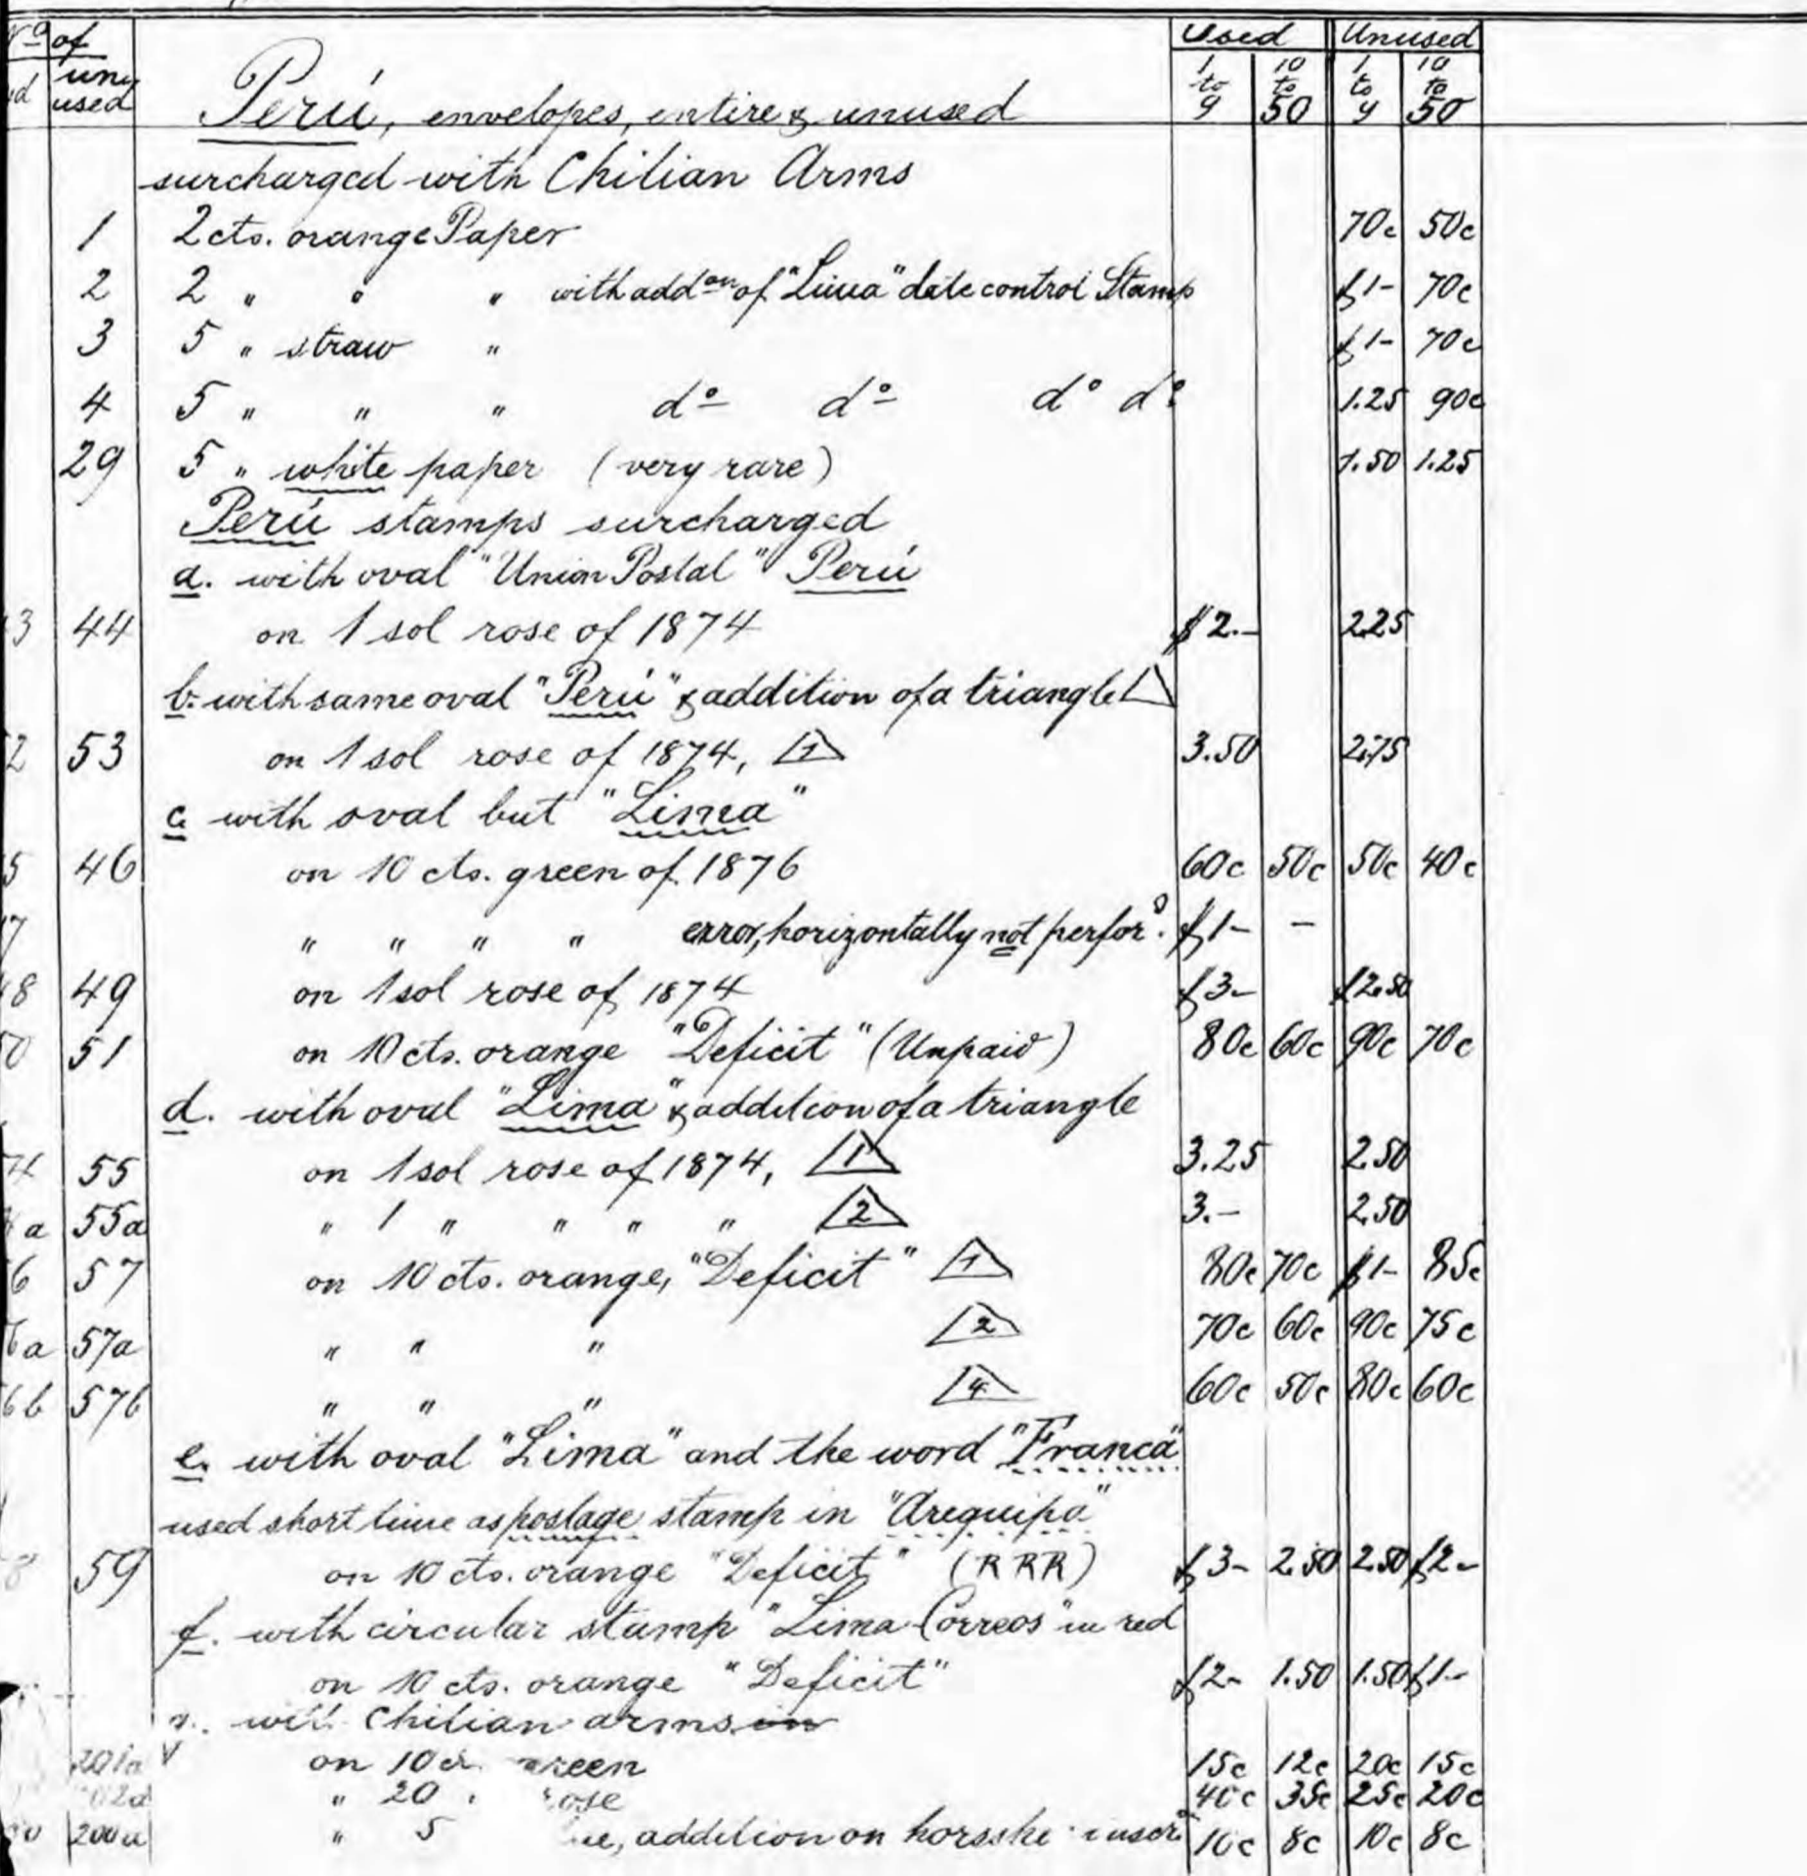 No of Used Unused
un used 1 to 9 10 to 50 1 to 9 10 to 50
Perú, envelopes, entire & unused
surcharged with Chilian Arms
1 2 cts. orange Paper 70c 50c
2 2 " " " with addon of "Lima" date control Stamp $1- 70c
3 5 " straw " $1- 70c
4 5 " " " do do do do 1.25 90c
29 5 " white paper (very rare) 1.50 1.25
Perú stamps surcharged
a. with oval "Union Postal" Perú
3 44 on 1 sol rose of 1874 $2.- 2.25
b. with same oval "Perú" & addition of a triangle
2 53 on 1 sol rose of 1874, 1 3.50 2.75
c. with oval but "Lima"
5 46 on 10 cts. green of 1876 60c 50c 50c 40c
7 " " " " error, horizontally not perfor.d $1- -
8 49 on 1 sol rose of 1874 $3- $2.50
0 51 on 10 cts. orange "Deficit" (Unpaid) 80c 60c 90c 70c
d. with oval "Lima" & addition of a triangle
4 55 on 1 sol rose of 1874, 1 3.25 2.50
a 55a " 1 " " " " 2 3.- 2.50
6 57 on 10 cts. orange, "Deficit" 1 80c 70c $1- 85c
6a 57a " " " 2 70c 60c 90c 75c
6b 57b " " " 4 60c 50c 80c 60c
e. with oval "Lima" and the word "Franca"
used short time as postage stamp in "Arequipa"
8 59 on 10 cts. orange "Deficit" (RRR) $3- 2.50 2.50 $2-
f. with circular stamp "Lima Correos" in red
on 10 cts. orange "Deficit" $2- 1.50 1.50 $1-
with Chilian arms in
201a on 10 c. green 15c 12c 20c 15c
02a " 20 " rose 40c 35c 25c 20c
200a " 5 addition on 10c 8c 10c 8c